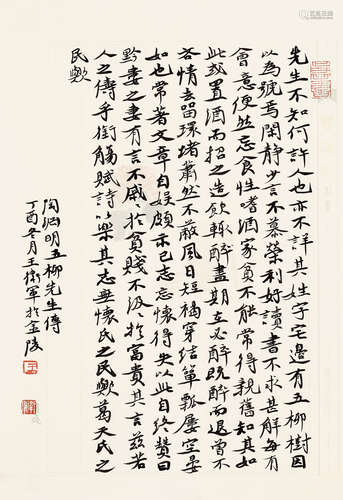 先生不知何許人也亦不詳其姓字宅邊有五柳樹因
以為號焉閑靜少言不慕榮利好讀書不求甚解每有
會意便然忘食性嗜酒家貧不能常得親舊知其如
此或置酒而招之造飲輒醉盡期在必醉既醉而退曾不
吝情去留環堵蕭然不蔽風日短褐穿結簞瓢屢空晏
如也常著文章自娛頗示己志忘懷得失以此自終贊曰
黔婁之妻有言不戚〻於貧賤不汲〻於富貴其言茲若
人之儔乎銜觴賦詩以樂其志無懷氏之民歟葛天氏之
民歟
陶淵明五柳先生傳
丁酉冬月王衛軍於金陵